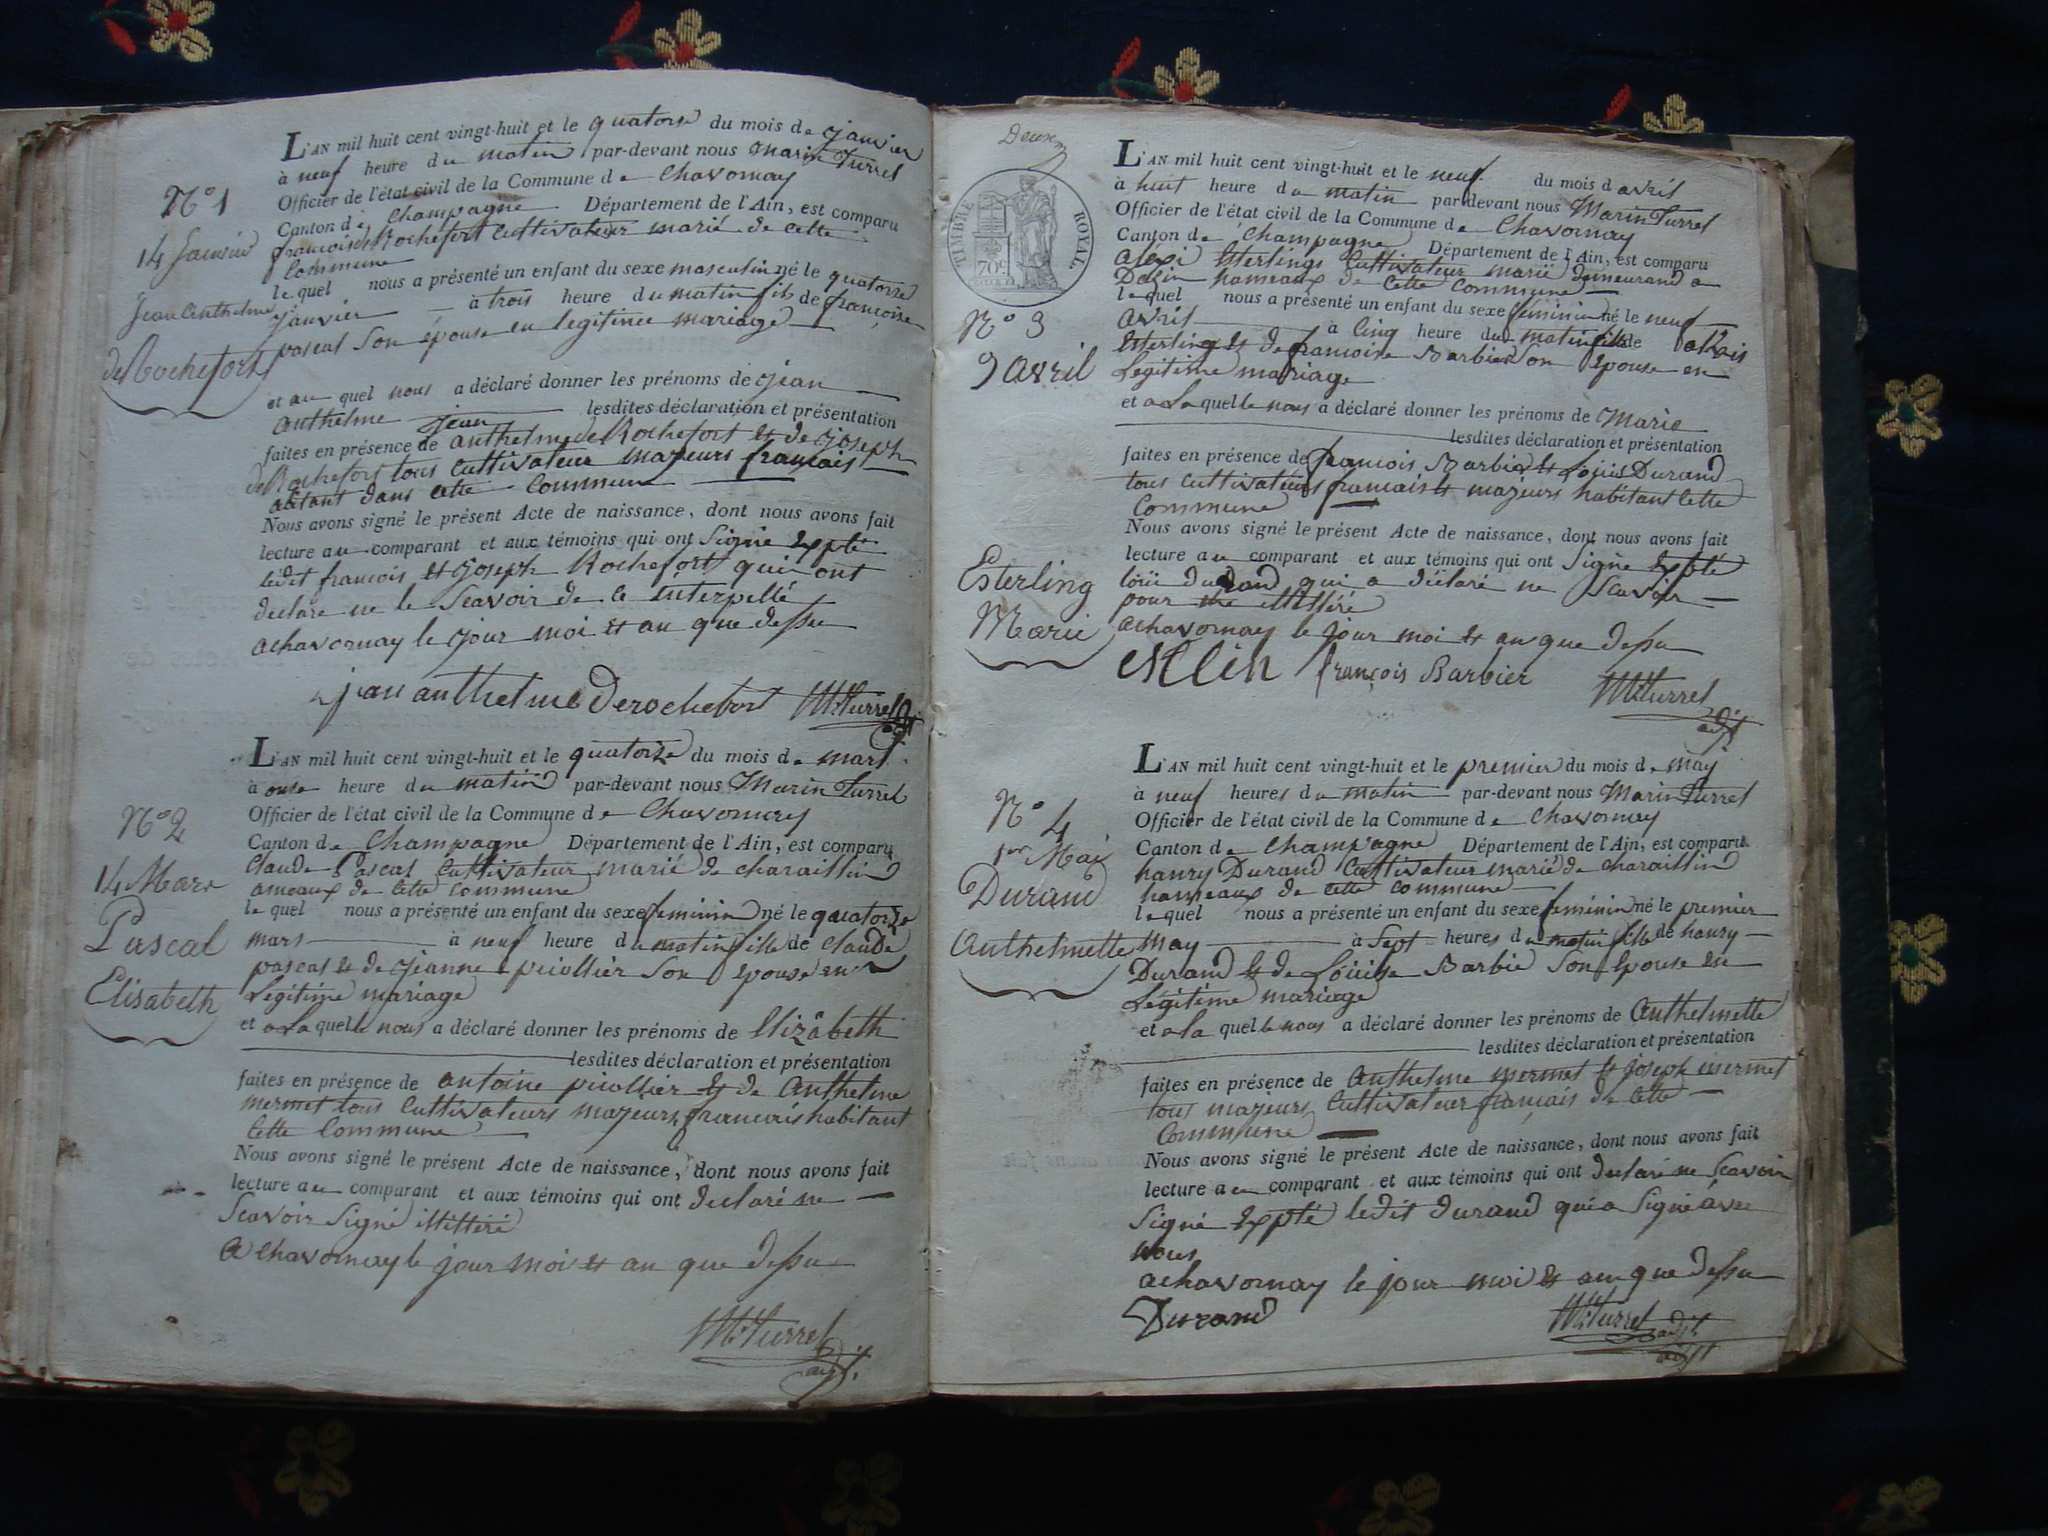 N° 1
14 Janvier
Jean Anthelme
de Rochefort
L'AN mil huit cent vingt-huit et le quatorse du mois de janvier
à neuf heure du matin par-devant nous Marin Turrel
Officier de l'état civil de la Commune de Chavornay
Canton de Champagne Département de l'Ain, est comparu
francois de Rochefort Cultivateur marié de cette
Commune
lequel nous a présenté un enfant du sexe masculin né le quatorse
janvier à trois heure du matin fils de françoise
pascal Son épouse en legitime mariage
et au quel nous a déclaré donner les prénoms de jean
anthelme jean lesdites déclaration et présentation
faites en présence de anthelme de Rochefort et de joseph
de Rochefort tous Cultivateur majeurs francais
abitant dans cette Commune
Nous avons signé le présent Acte de naissance, dont nous avons fait
lecture au comparant et aux témoins qui ont Signé expté
ledit francois et joseph Rochefort qui ont
declare ne le Scavoir de ce interpellé
achavornay le jour moi et an que dessu
jean anthelme Derochefort MTurrel
adjt
N° 2
14 Mars
Pascal
Elisabeth
L'AN mil huit cent vingt-huit et le quatorze du mois de mars
à onse heure du matin par-devant nous Marin Turrel
Officier de l'état civil de la Commune de Chavornay
Canton de Champagne Département de l'Ain, est comparu
Claude Pascal Cultivateur marié de charaillin
ameaux de cette commune
lequel nous a présenté un enfant du sexe feminin né le quatorze
mars à neuf heure du matin fille de Claude
pascal et de jeanne picollier Son epouse en
Legitime mariage
et a La quelle nous a déclaré donner les prénoms de Elizâbeth
lesdites déclaration et présentation
faites en présence de antoine picollier et de Anthelme
mermet tous Cultivateurs majeurs francais habitant
cette Commune
Nous avons signé le présent Acte de naissance, dont nous avons fait
lecture au comparant et aux témoins qui ont declaré ne
Scavoir Signé illittéré
A chavornay le jour moi et an que dessu
MTurrel
adjt.
Deux
TIMBRE ROYAL
70c
N° 3
9 avril
Esterling
Marie
L'AN mil huit cent vingt-huit et le neuf du mois d avril
à huit heure du matin par devant nous Marin Turrel
Officier de l'état civil de la Commune de Chavornay
Canton de Champagne Département de l'Ain, est comparu
alexi Esterlings Cultivateur marié demeurand a
Dazin hameaux de cette Commune
lequel nous a présenté un enfant du sexe féminin né le neuf
avril à cinq heure du matin fille de alexis
Esterling et de francoise Barbier Son epouse en
Legitime mariage
et a La quelle nous a déclaré donner les prénoms de Marie
lesdites déclaration et présentation
faites en présence de francois Barbier et Loüis Durand
tous cultivateurs francais et majeurs habitant cette
Commune
Nous avons signé le présent Acte de naissance, dont nous avons fait
lecture au comparant et aux témoins qui ont Signé expté
loüi durand qui a déclaré ne Scavoir
pour illittéré
achavornay le jour moi et an que dessu
françois Barbier
MTurrel
adjt
N° 4
1er Mai
Durand
Anthelmette
L'AN mil huit cent vingt-huit et le premier du mois de may
à neuf heures du matin par-devant nous Marin Turrel
Officier de l'état civil de la Commune de Chavornay
Canton de Champagne Département de l'Ain, est comparu
hanry Durand Cultivateur marié de charaillin
hameaux de cette commune
lequel nous a présenté un enfant du sexe feminin né le premier
may à Sept heures du matin fille de hanry
Durand et de Loüise Barbie Son Epouse en
Legitime mariage
et a la quelle nous a déclaré donner les prénoms de Anthelmette
lesdites déclaration et présentation
faites en présence de Anthelme mermet et joseph mermet
tous majeurs Cultivateur français de cette
Commune
Nous avons signé le présent Acte de naissance, dont nous avons fait
lecture au comparant et aux témoins qui ont declaré ne Scavoir
Signé expté ledit durand qui a Signé avec
nous
achavornay le jour moi et an que dessu
Durand
MTurrel adjt
adjt